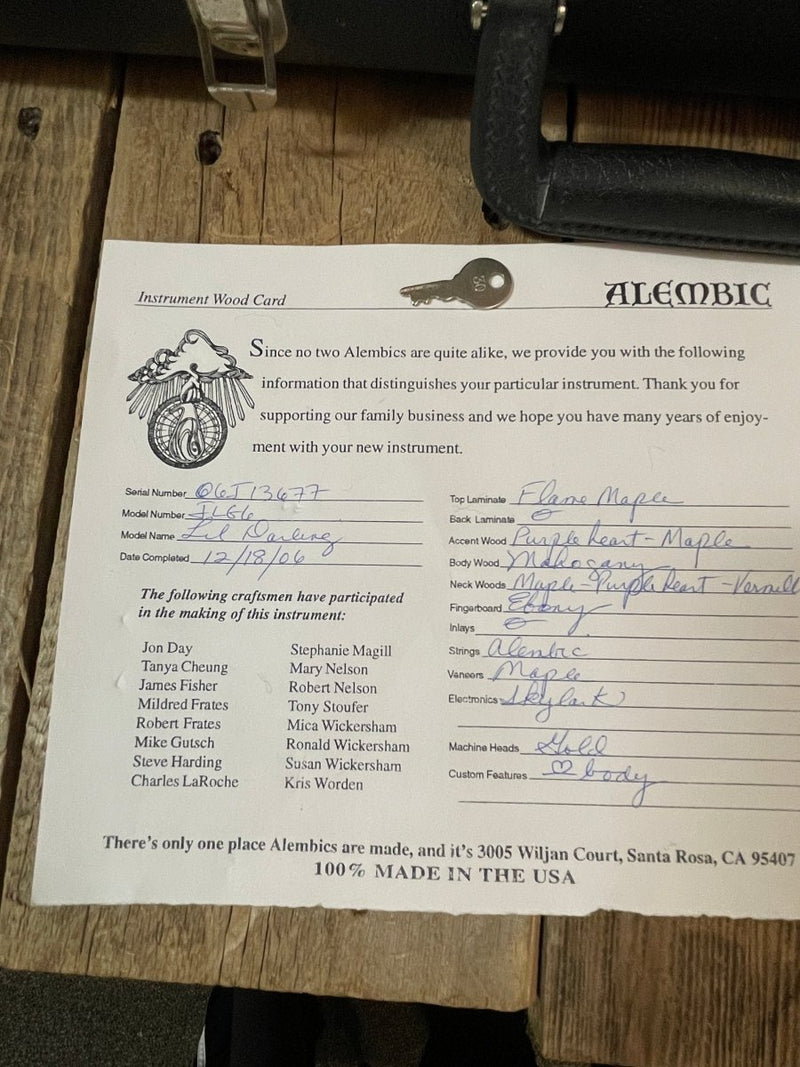 Instrument Wood Card
ALEMBIC
Since no two Alembics are quite alike, we provide you with the following
information that distinguishes your particular instrument. Thank you for
supporting our family business and we hope you have many years of enjoy-
ment with your new instrument.
Serial Number 06J13677
Model Number
Model Name Lil Darling
Date Completed 12/18/06
The following craftsmen have participated
in the making of this instrument:
Jon Day
Tanya Cheung
James Fisher
Mildred Frates
Robert Frates
Mike Gutsch
Steve Harding
Charles LaRoche
Stephanie Magill
Mary Nelson
Robert Nelson
Tony Stoufer
Mica Wickersham
Ronald Wickersham
Susan Wickersham
Kris Worden
Top Laminate Flame Maple
Back Laminate
Accent Wood Purple heart - Maple
Body Wood Mahogany
Neck Woods Maple - Purple heart - Vermill
Fingerboard Ebony
Inlays
Strings Alembic
Veneers Maple
Electronics Skylark
Machine Heads Gold
Custom Features ♡ body
There's only one place Alembics are made, and it's 3005 Wiljan Court, Santa Rosa, CA 95407
100% MADE IN THE USA